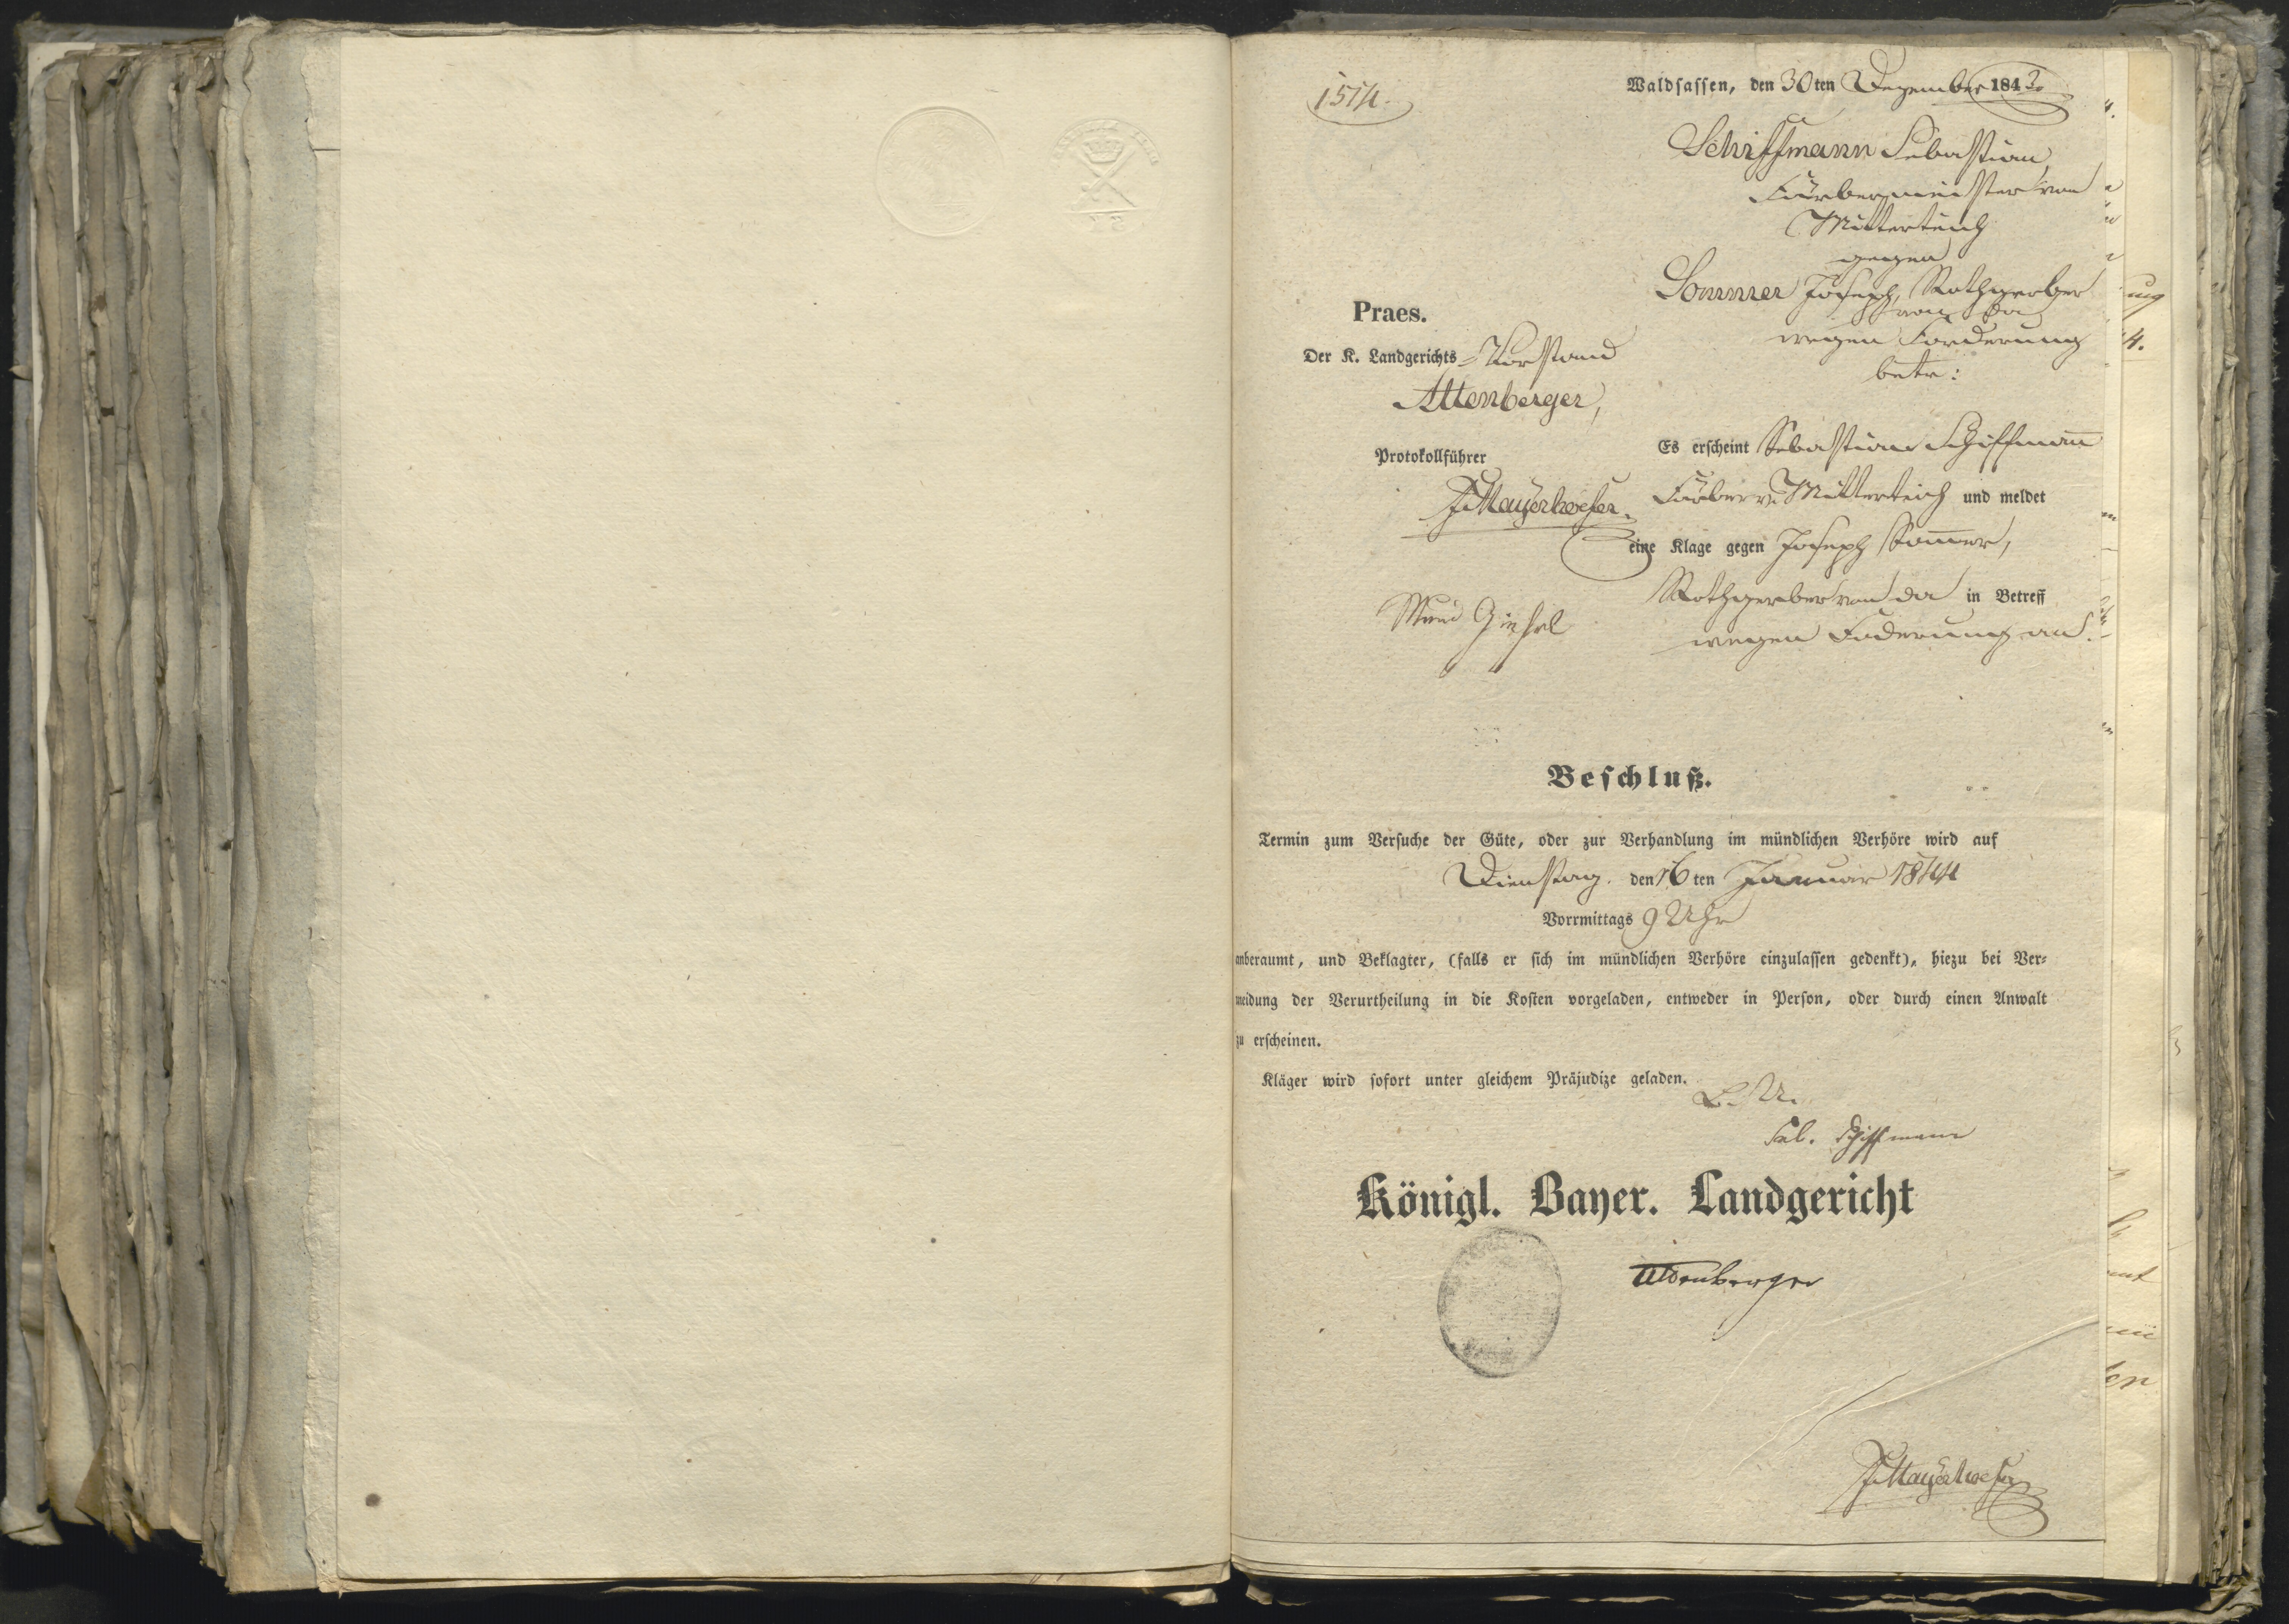 1514.
Waldsassen, den 30ten Dezember 1843.
Schiffmann Sebastian
Färbermeister von
Mitterteich
gegen
Sommer Joseph, Rothgerber
von da
wegen Forderung
betr:
Praes.
Der K. Landgerichts-Vorstand
Attenberger,
Protokollführer
Es erscheint Sebastian Schiffmann
Färber v. Mitterteich und meldet
eine Klage gegen Joseph Sommer,
Rothgerber von da in Betreff
wegen Foderung an.
Beschluß.
Termin zum Versuche der Güte, oder zur Verhandlung im mündlichen Verhöre wird auf
Dienstag den 16ten Januar 1844
Vorrmittags 9 Uhr
anberaumt, und Beklagter, (falls er sich im mündlichen Verhöre einzulassen gedenkt), hiezu bei Ver-
meidung der Verurtheilung in die Kosten vorgeladen, entweder in Person, oder durch einen Anwalt
zu erscheinen.
Kläger wird sofort unter gleichem Präjudize geladen.
L. U.
Seb. Schiffmann
Königl. Bayer. Landgericht
Attenberger